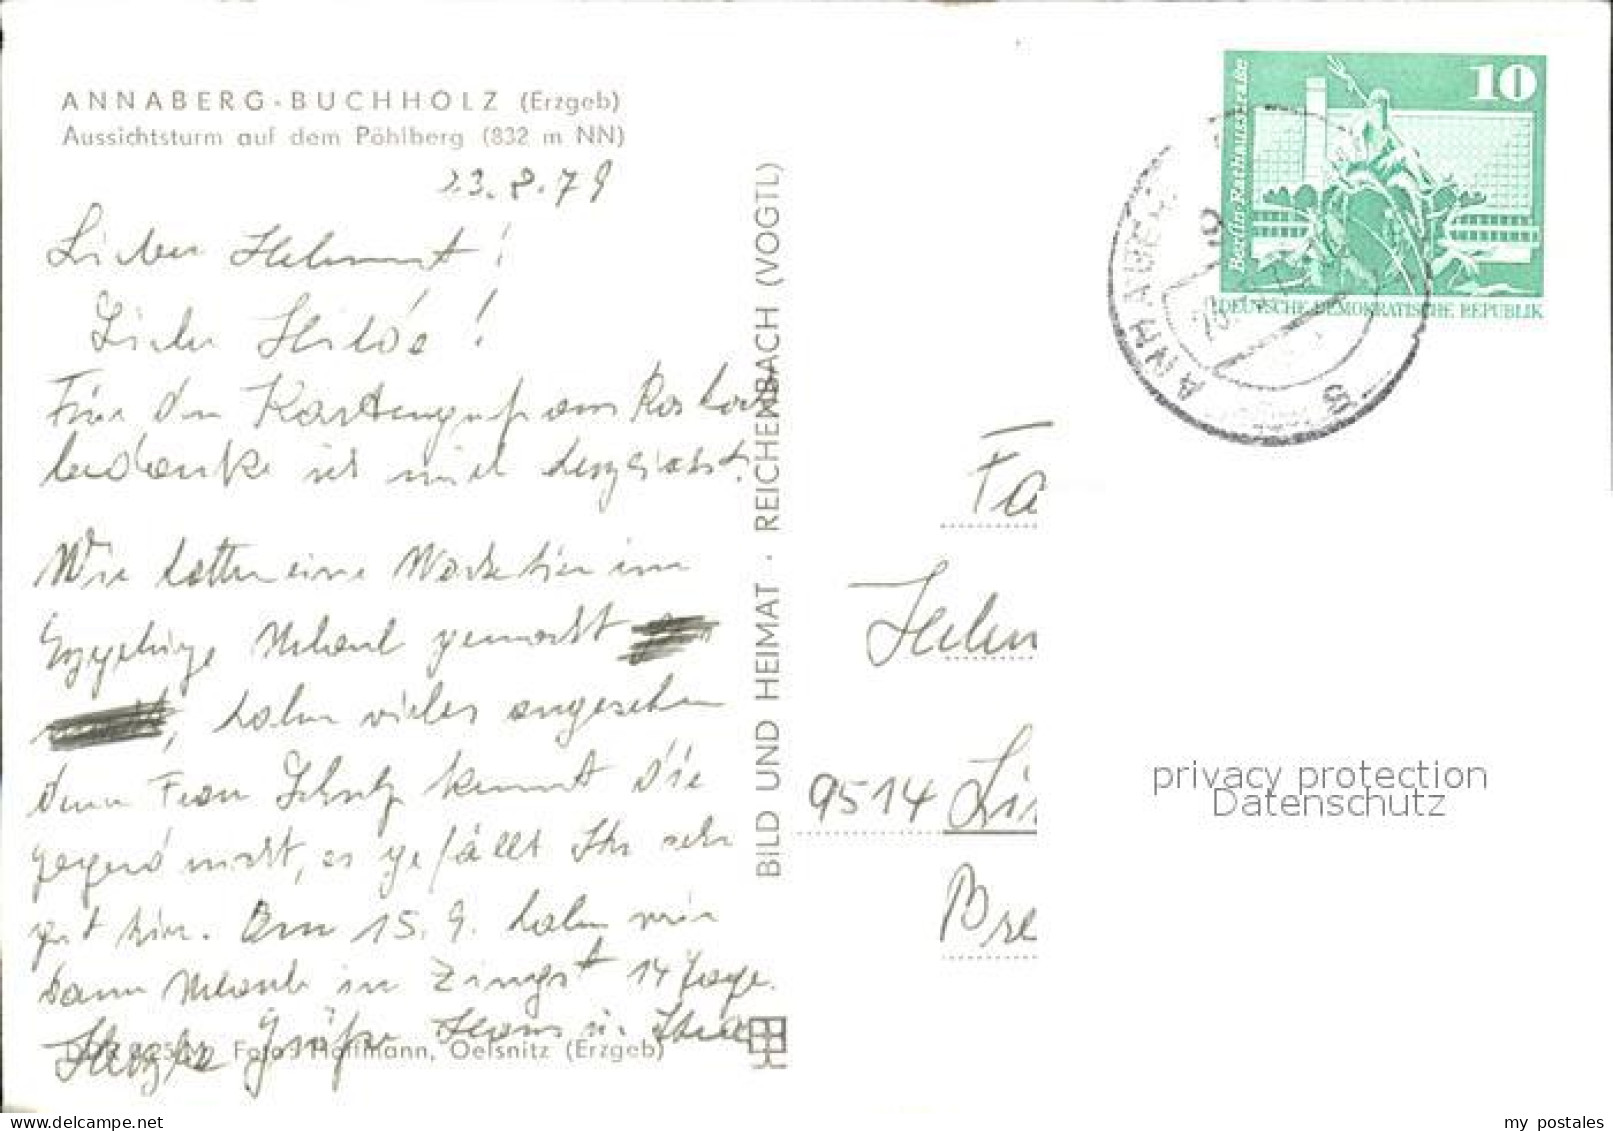 ANNABERG-BUCHHOLZ (Erzgeb)
Aussichtsturm auf dem Pöhlberg (832 m NN)
23.8.79
Lieber Helmut!
Liebe Hilde!
Für den Kartengruß am
bedanke ich mich herzlichst.
Wir hatten eine Woche hier im
Erzgebirge Urlaub gemacht
, haben vieles angesehen
denn Frau Scholz kennt die
gegend nicht, es gefällt Ihr sehr
gut hier. Am 15.9. haben wir
dann Urlaub in Zingst 14 Tage.
Herzl. Grüße Hans u.
Foto: Hoffmann, Oelsnitz (Erzgeb)
BILD UND HEIMAT · REICHENBACH (VOGTL)
10
Berlin-Rathausstraße
DEUTSCHE DEMOKRATISCHE REPUBLIK
ANNABERG
Fa
Helm
9514 Lin
Bre
privacy protection
Datenschutz
delcampe.net
my postales